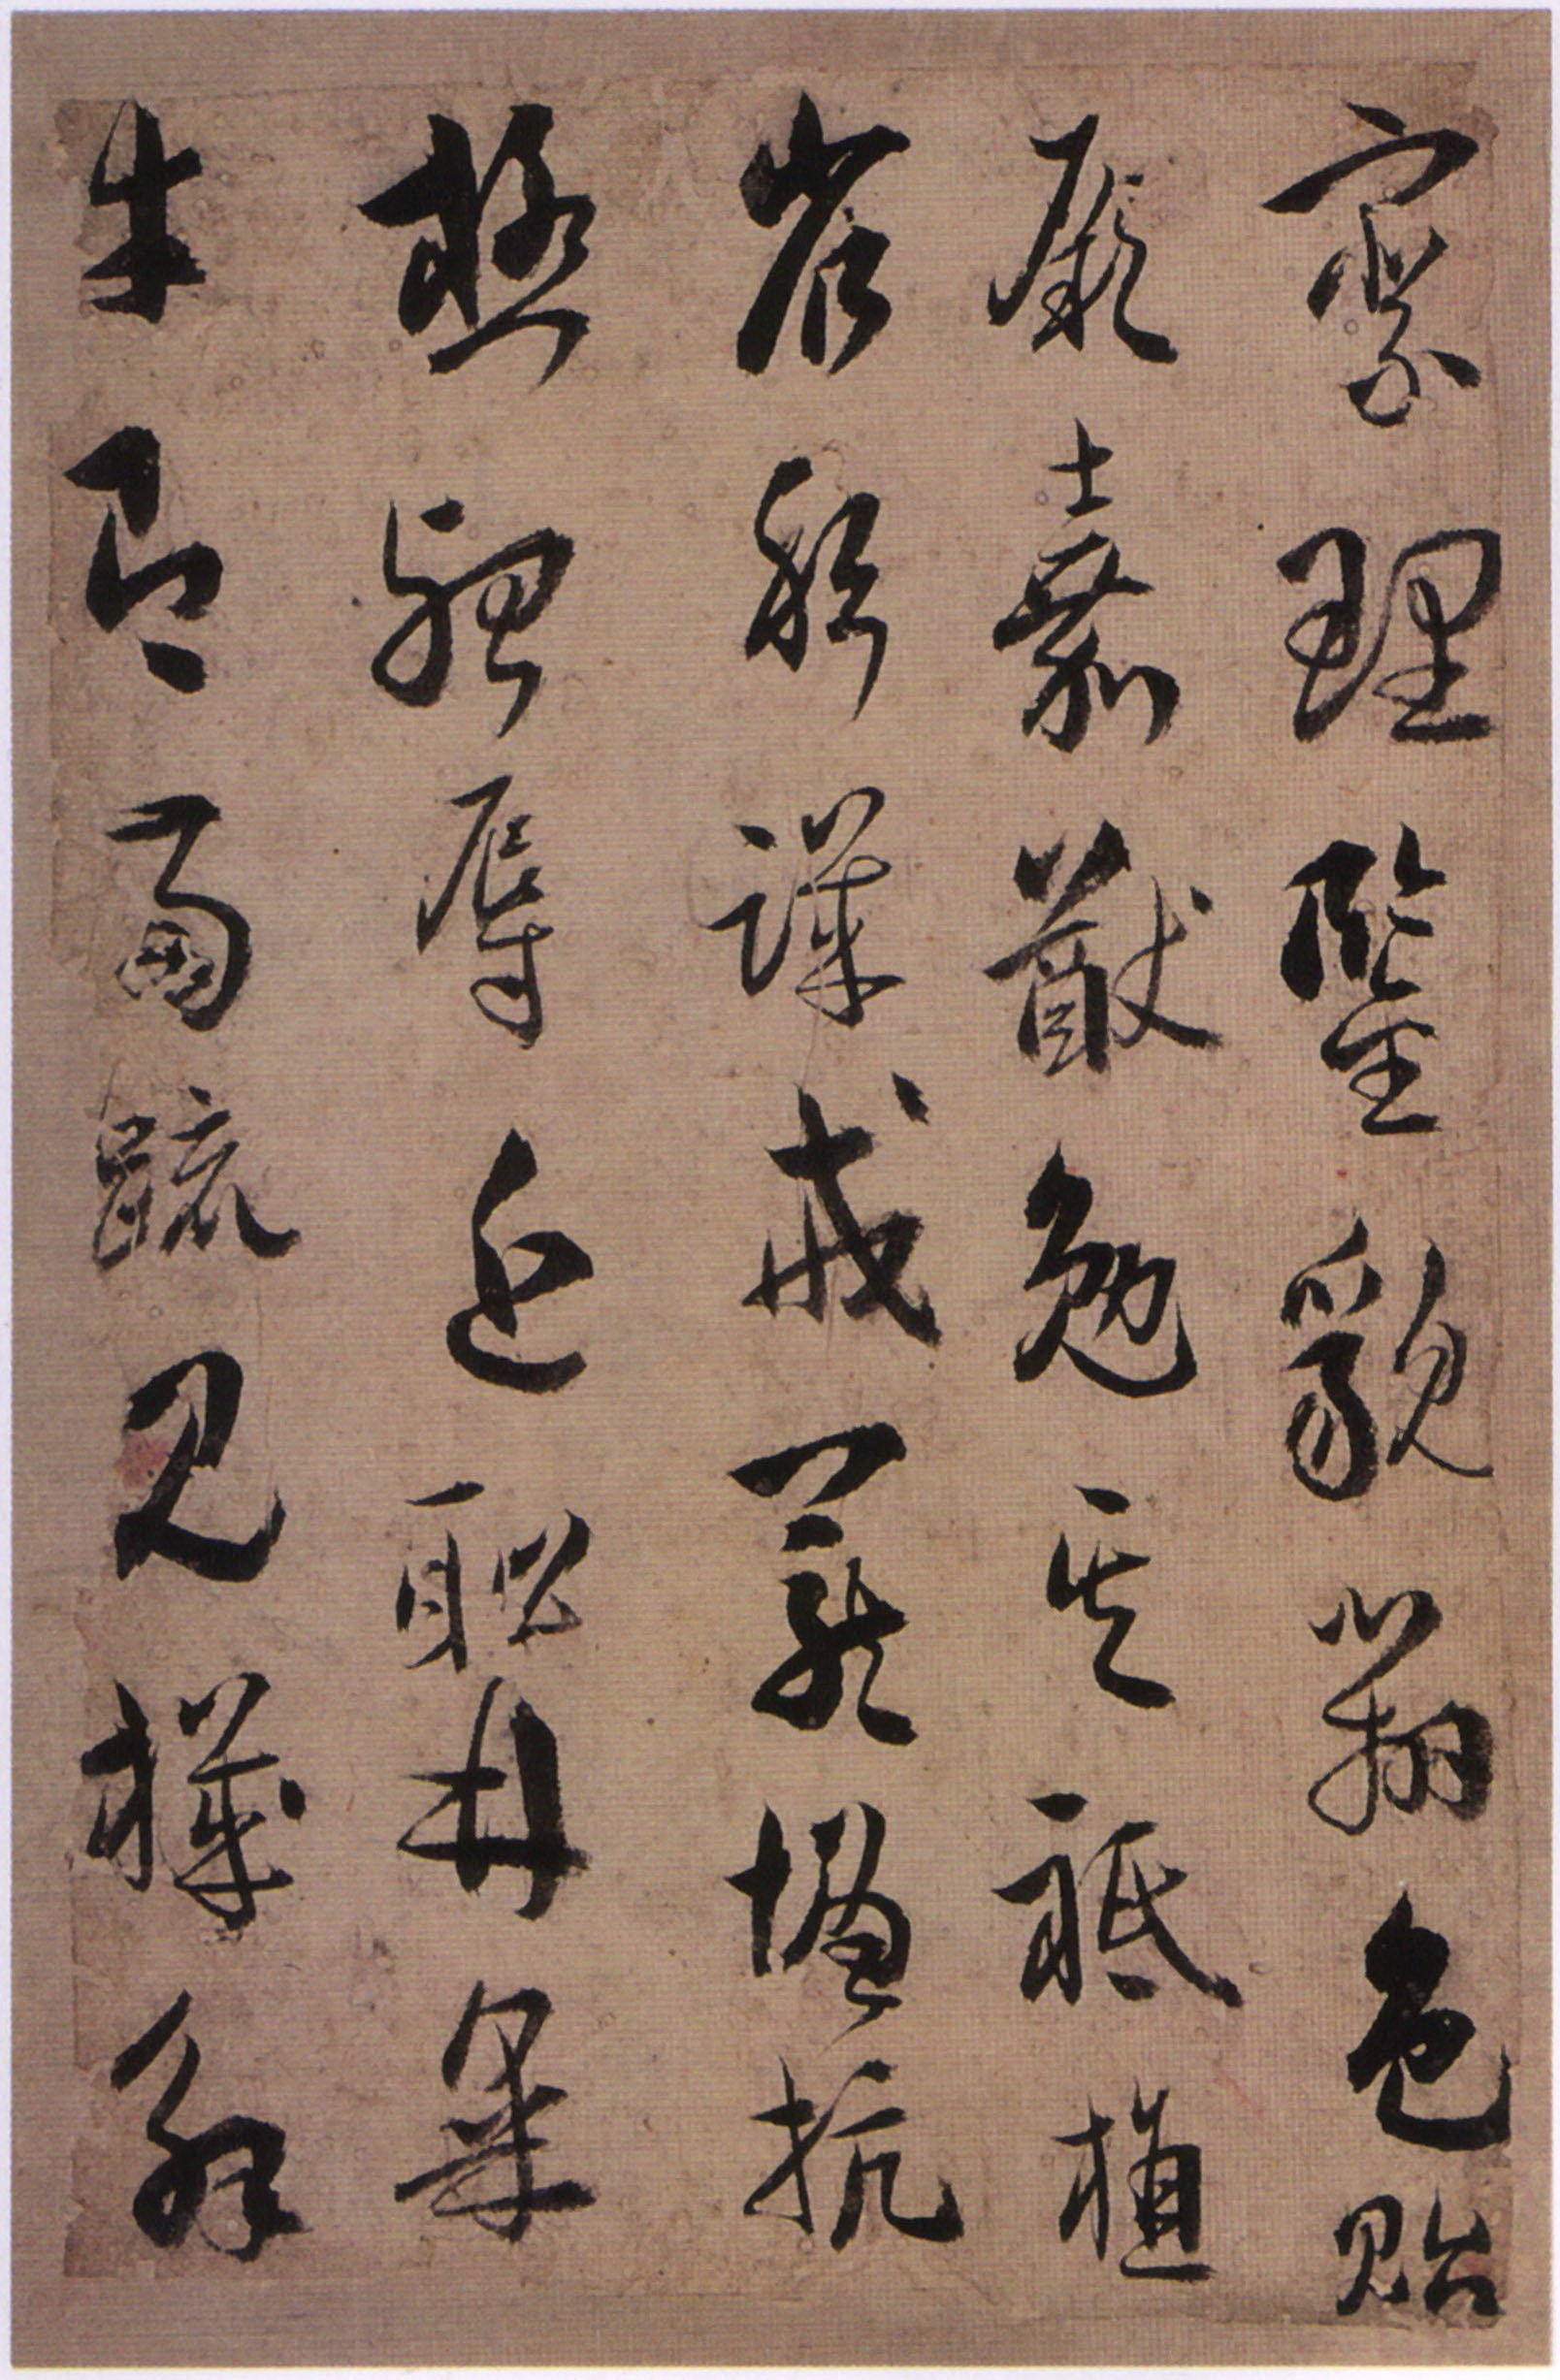 察理鑒貌辨色貽
厥嘉猷勉其祗植
省躬譏戒寵增抗
極殆辱近恥林皋
幸即兩疏見機解